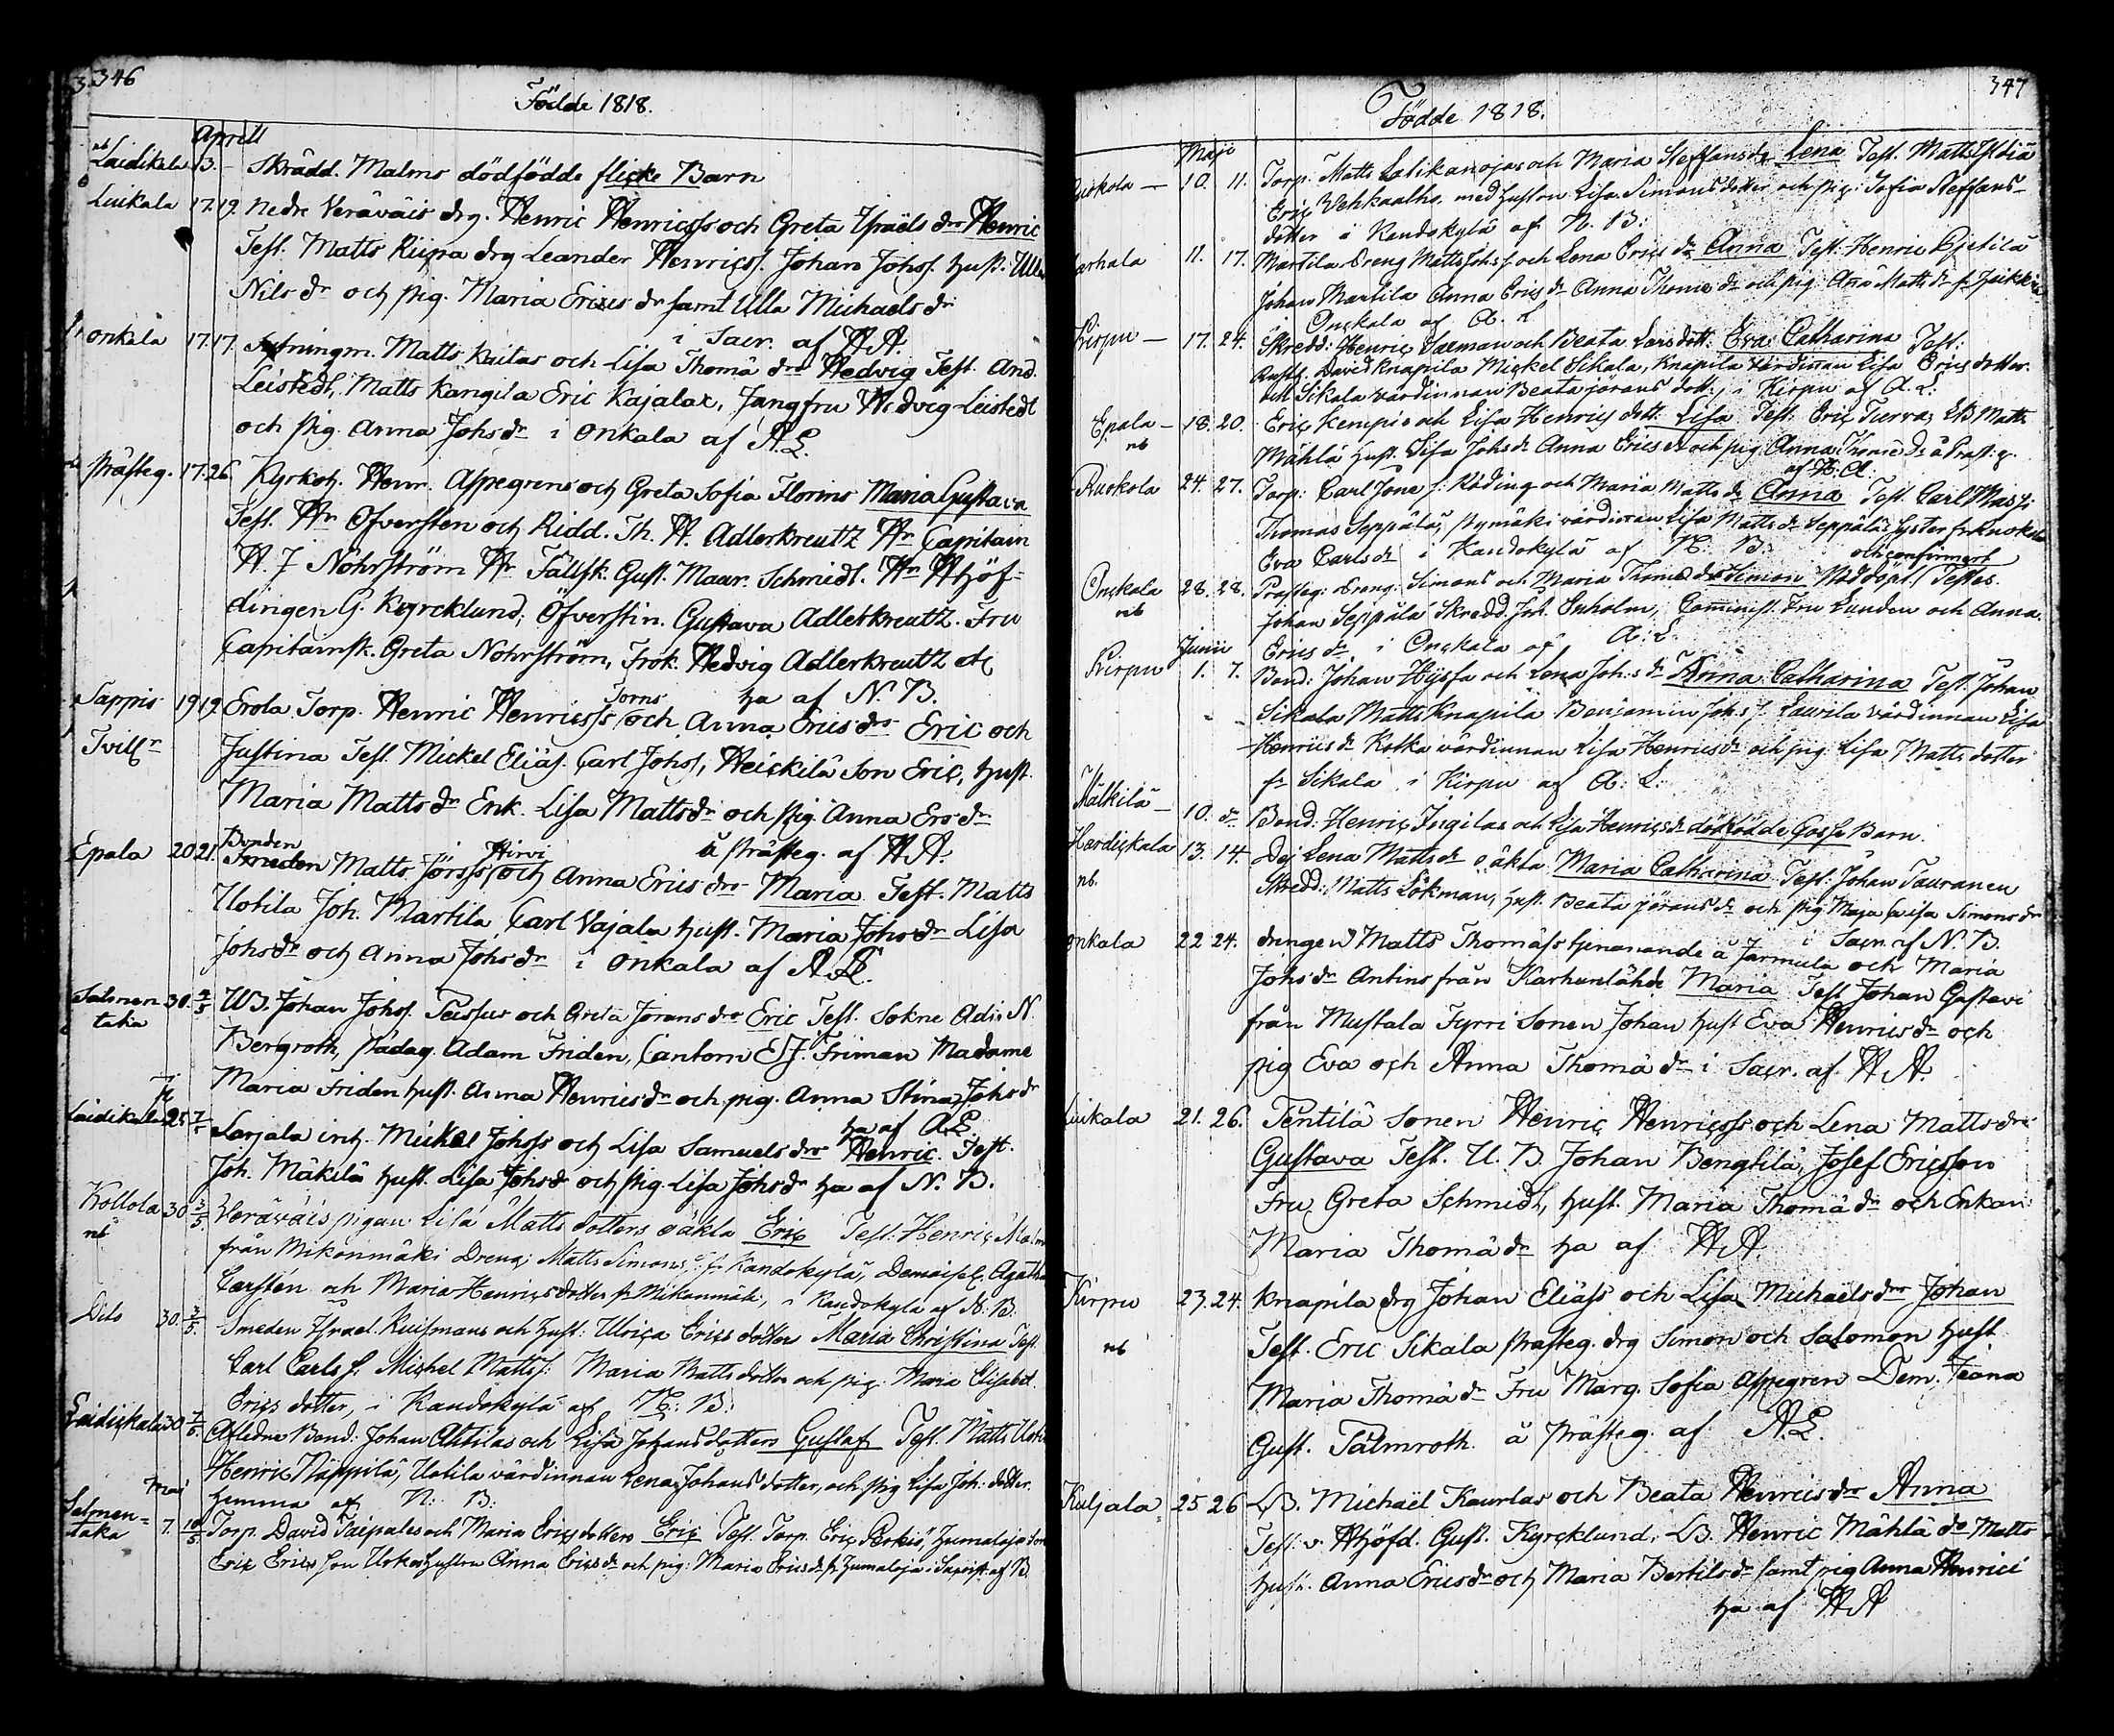 346
Födde 1818.
Aprill
nb Laidikala 13. – Skrädd. Malms dödfödde flicke Barn
Luikala 17. 19. Nedre Veräväis drg. Henric Henricss och Greta Israels drs Henric
Test. Matts Rupra drg Leander Henricss. Johan Johss. Hust. Ulla
Nils dr och pig. Maria Erics dr samt Ulla Michaels dr
i Sacr. af H A.
Onkala 17. 17. Matts Knitas och Lisa Thomä drs Hedvig Test. And.
Leistedt, Matts Kangila Eric Kajalax, Jungfru Hedvig Leistedt
och pig. Anna Johs dr i Onkala af A. L.
Prästeg. 17. 26. Kyrkoh. Henr. Aspegrens och Greta Sofia Florins Maria Gustava
Test. Hr Öfversten och Ridd. Th. H. Adlerkreutz Hr Capitain
H. J Nohrström Hr Fältsk. Gust. Maur. Schmidt. Hr Höf-
dingen G. Kyrcklund; Öfverstin. Gustava Adlerkreutz. Fru
Capitainsk. Greta Nohrström, Frök. Hedvig Adlerkreutz etc
Jorns ha af N. B.
Sappis 19 19. Erola Torp. Henric Henricss och Anna Erics drs Eric och
Tvill.r Justina Test. Mickel Eliäs. Carl Johss, Heickilä Son Eric, hust.
Maria Matts dr Enk. Lisa Matts dr och pig. Anna Ers dr
å Prästeg. af H A.
Bonden Hirvi
Epala 20 21. Smeden Matts Jörss och Anna Erics drs Maria Test. Matts
Uotila Joh. Martila, Carl Vajala hust. Maria Johs dr Lisa
Johs dr och Anna Johs dr i Onkala af A L.
Salmen- 30. 4/5 UB. Johan Johss. Peissus och Greta Jörans drs Eric Test. Sokne Adj. N.
taka
Bergroth, Pädag. Adam Friden, Cantorn E J. Friman Madame
Maria Friden hust. Anna Henrics dr och pig. Anna Stina Johs dr
ha af A L
Laidikala 25 7/5 Sarjala inh. Mickel Johss och Lisa Samuels drs Henric. Test.
Joh. Mäkilä hust. Lisa Johs dr och pig. Lisa Johs dr ha af N. B.
Kollola 30 3/5 Veräväis pigan Lisa Matts dotters oäkta Eric Test: Henric Malm
nb
från Mikonmäki Dreng: Matts Simons s. fr Kandokylä, Demoisel. Agatha
Carstén och Maria Henrics dotter fr Mikonmäki, i Kandokylä af N: B.
Dito 30. 3/5. Smeden Israel Kuismans och hust: Ulrica Erics dotters Maria Christina Test.
Carl Carls s. Michel Matts s: Maria Matts dotter och pig. Maria Elisabet
Erics dotter, i Kandokylä af N: B.
Laidickala 30 7/5 Afledne Bond: Johan Anttilas och Lisa Johans dotters Gustaf Test. Matts Uotila
Henric Näppilä, Uotila värdinnan Lena Johans dotter, och pig Lisa Joh: dotter
hemma af N: B:
Mai
Salmen- 7. 10/5. Torp. David Taipales och Maria Erics dotters Eric Test. Torp. Eric Perkiö, Humaloja Son
taka
Eric Erics son Uoka hustru Anna Erics dr och pig: Maria Erics dr fr Humaloja i Sacrist. af B.
347
Födde 1818.
Maji
Ruokola – 10. 11. Torp. Matts Latikanojas och Maria Steffans dr Lena Test. Matts
Eric Vehkaalho med hustru Lisa Simons dotter och pig: Sofia Steffans-
dotter i Kandokylä af N. B:
Karhala 11. 17. Martila Dreng Matts Johs s. och Lena Erics dr Anna Test: Henric Pjetilä
Johan Martila Anna Erics dr Anna Thomæ dr och pig: Anna Matts dr fr
Onckala af A. L
Kirpu – 17. 24. Skredd: Henric Saxman och Beata Lars dott: Eva Catharina Test:
Rustf. David Knapila Mickel Sikala, Knapila värdinnan Lisa Erics dotter
och Sikala värdinnan Beata Jörans dott:, i Kirpu af A. L:
Epala – 18. 20. Eric Kempis och Lisa Henrics dott: Lisa Test. Eric Turva, LB Matts
nb
Mählä hust. Lisa Johs dr Anna Erics dr och pig Anna Thomæ dr å Präst: g.
af H. A.
Ruokola 24. 27. Torp: Carl Jone s: Röding och Maria Matts dr Anna Test. Carl Massi
Thomas Seppälä, Nymäki värdinnan Lisa Matts dr Seppälä Syster fr Ruokola
Eva Carls dr i Kandokylä af N: B:
och confirmert
Onckala 28. 28. Prästeg: Dreng: Simons och Maria Thomæ drs Simon Nöddöpt. Testes.
nb
Johan Seppälä Skredd. Joh: Enholm, Comminist. Fru Lunden och Anna
Erics dr i Onckala af A: L.
Junii
Kirpu 1. 7. Bond: Johan Hyssa och Lena Joh:s dr Anna Catharina Test. Johan
Sikala Matts Knapila Benjamin Johs s. Laurila värdinnan Lisa
Henrics dr Kolka värdinnan Lisa Henrics dr och pig. Lisa Matts dotter
fr Sikala i Kirpu af A: L:
Mälkilä – 10. dr Bond: Henric Ingilas och Lisa Henrics dr dödfödde Gosse Barn.
Hardickala 13. 14. Dej Lena Matts dr oäkta Maria Catharina Test: Johan Tauranen
nb.
Skredd: Matts Lökman, hust. Beata Jörans dr och pig Maja Lisa Simons dr
i Sacr. af N. B.
Onkala 22 24. drengen Matts Thomäss tjenanande å Jarmula och Maria
Johs dr Antins från Karhunlähde Maria Test Johan Gustavi
från Mustala Fyrri Sonen Johan hust Eva Henrics dr och
pig Eva och Anna Thomä dr i Sacr. af H A.
Luikala 21. 26. Pentilä Sonen Henric Henricss och Lena Matts drs
Gustava Test. U. B Johan Bengtilä, Josef Ericsson
Fru Greta Schmidt, hust. Maria Thomä dr och Enkan
Maria Thomä dr ha af H A
Kirpu 23. 24. Knapila drg Johan Eliäss och Lisa Michaëls drs Johan
nb
Test. Eric Sikala Prästeg. drg Simon och Salomon hust
Maria Thomä dr Fru Marg. Sofia Aspegren Dem. Jeana
Gust. Palmroth å Prästeg. af A. L.
Kuljala 25 26 LB. Michaël Kaurlas och Beata Henrics drs Anna
Test: v. Höfd. Gust. Kyrcklund. LB. Henric Mählä do Matts
hust. Anna Erics dr och Maria Bertils dr samt pig Anna Henrici
ha af H A